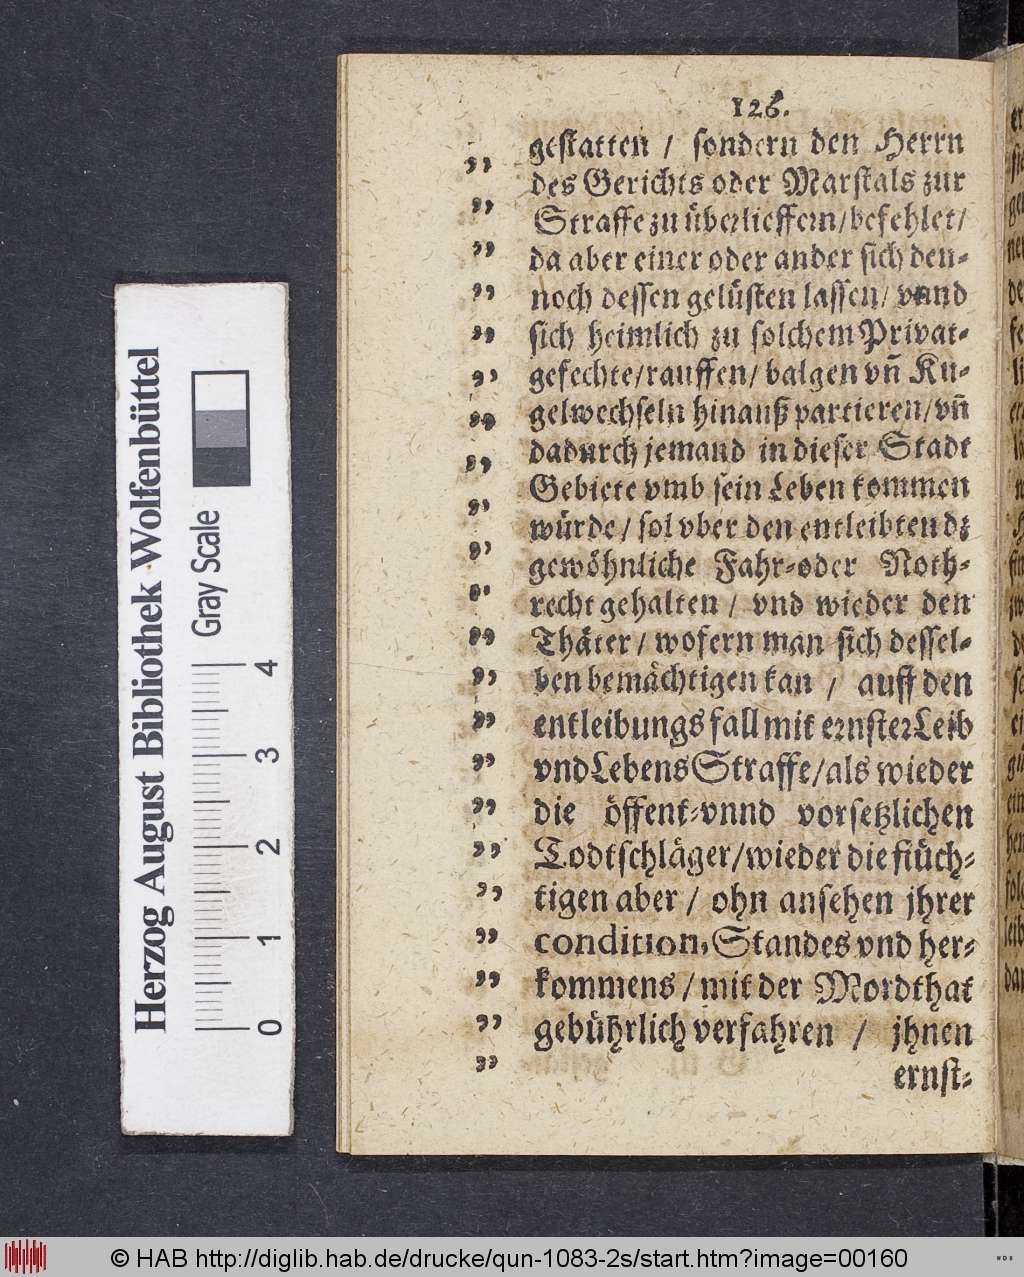 126.
gestatten / sondern den Herrn
des Gerichts oder Marstals zur
Straffe zu überlieffern/befehlet/
da aber einer oder ander sich den-
noch dessen gelüsten lassen/ vnnd
sich heimlich zu solchem Privat-
gefechte/rauffen/ balgen vñ Ku-
gelwechseln hinauß partieren/vñ
dadurch jemand in dieser Stadt
Gebiete vmb sein Leben kommen
würde / sol vber den entleibten dz
gewöhnliche Fahr-oder Noth-
recht gehalten / vnd wieder den
Thäter / wofern man sich dessel-
ben bemächtigen kan / auff den
entleibungs fall mit ernster Leib
vnd Lebens Straffe/als wieder
die öffent-vnnd vorsetzlichen
Todtschläger/wieder die flüch-
tigen aber / ohn ansehen jhrer
condition, Standes vnd her-
kommens / mit der Mordthat
gebührlich verfahren / jhnen
ernst-
Herzog August Bibliothek Wolfenbüttel
Gray Scale
0 1 2 3 4
© HAB http://diglib.hab.de/drucke/qun-1083-2s/start.htm?image=00160